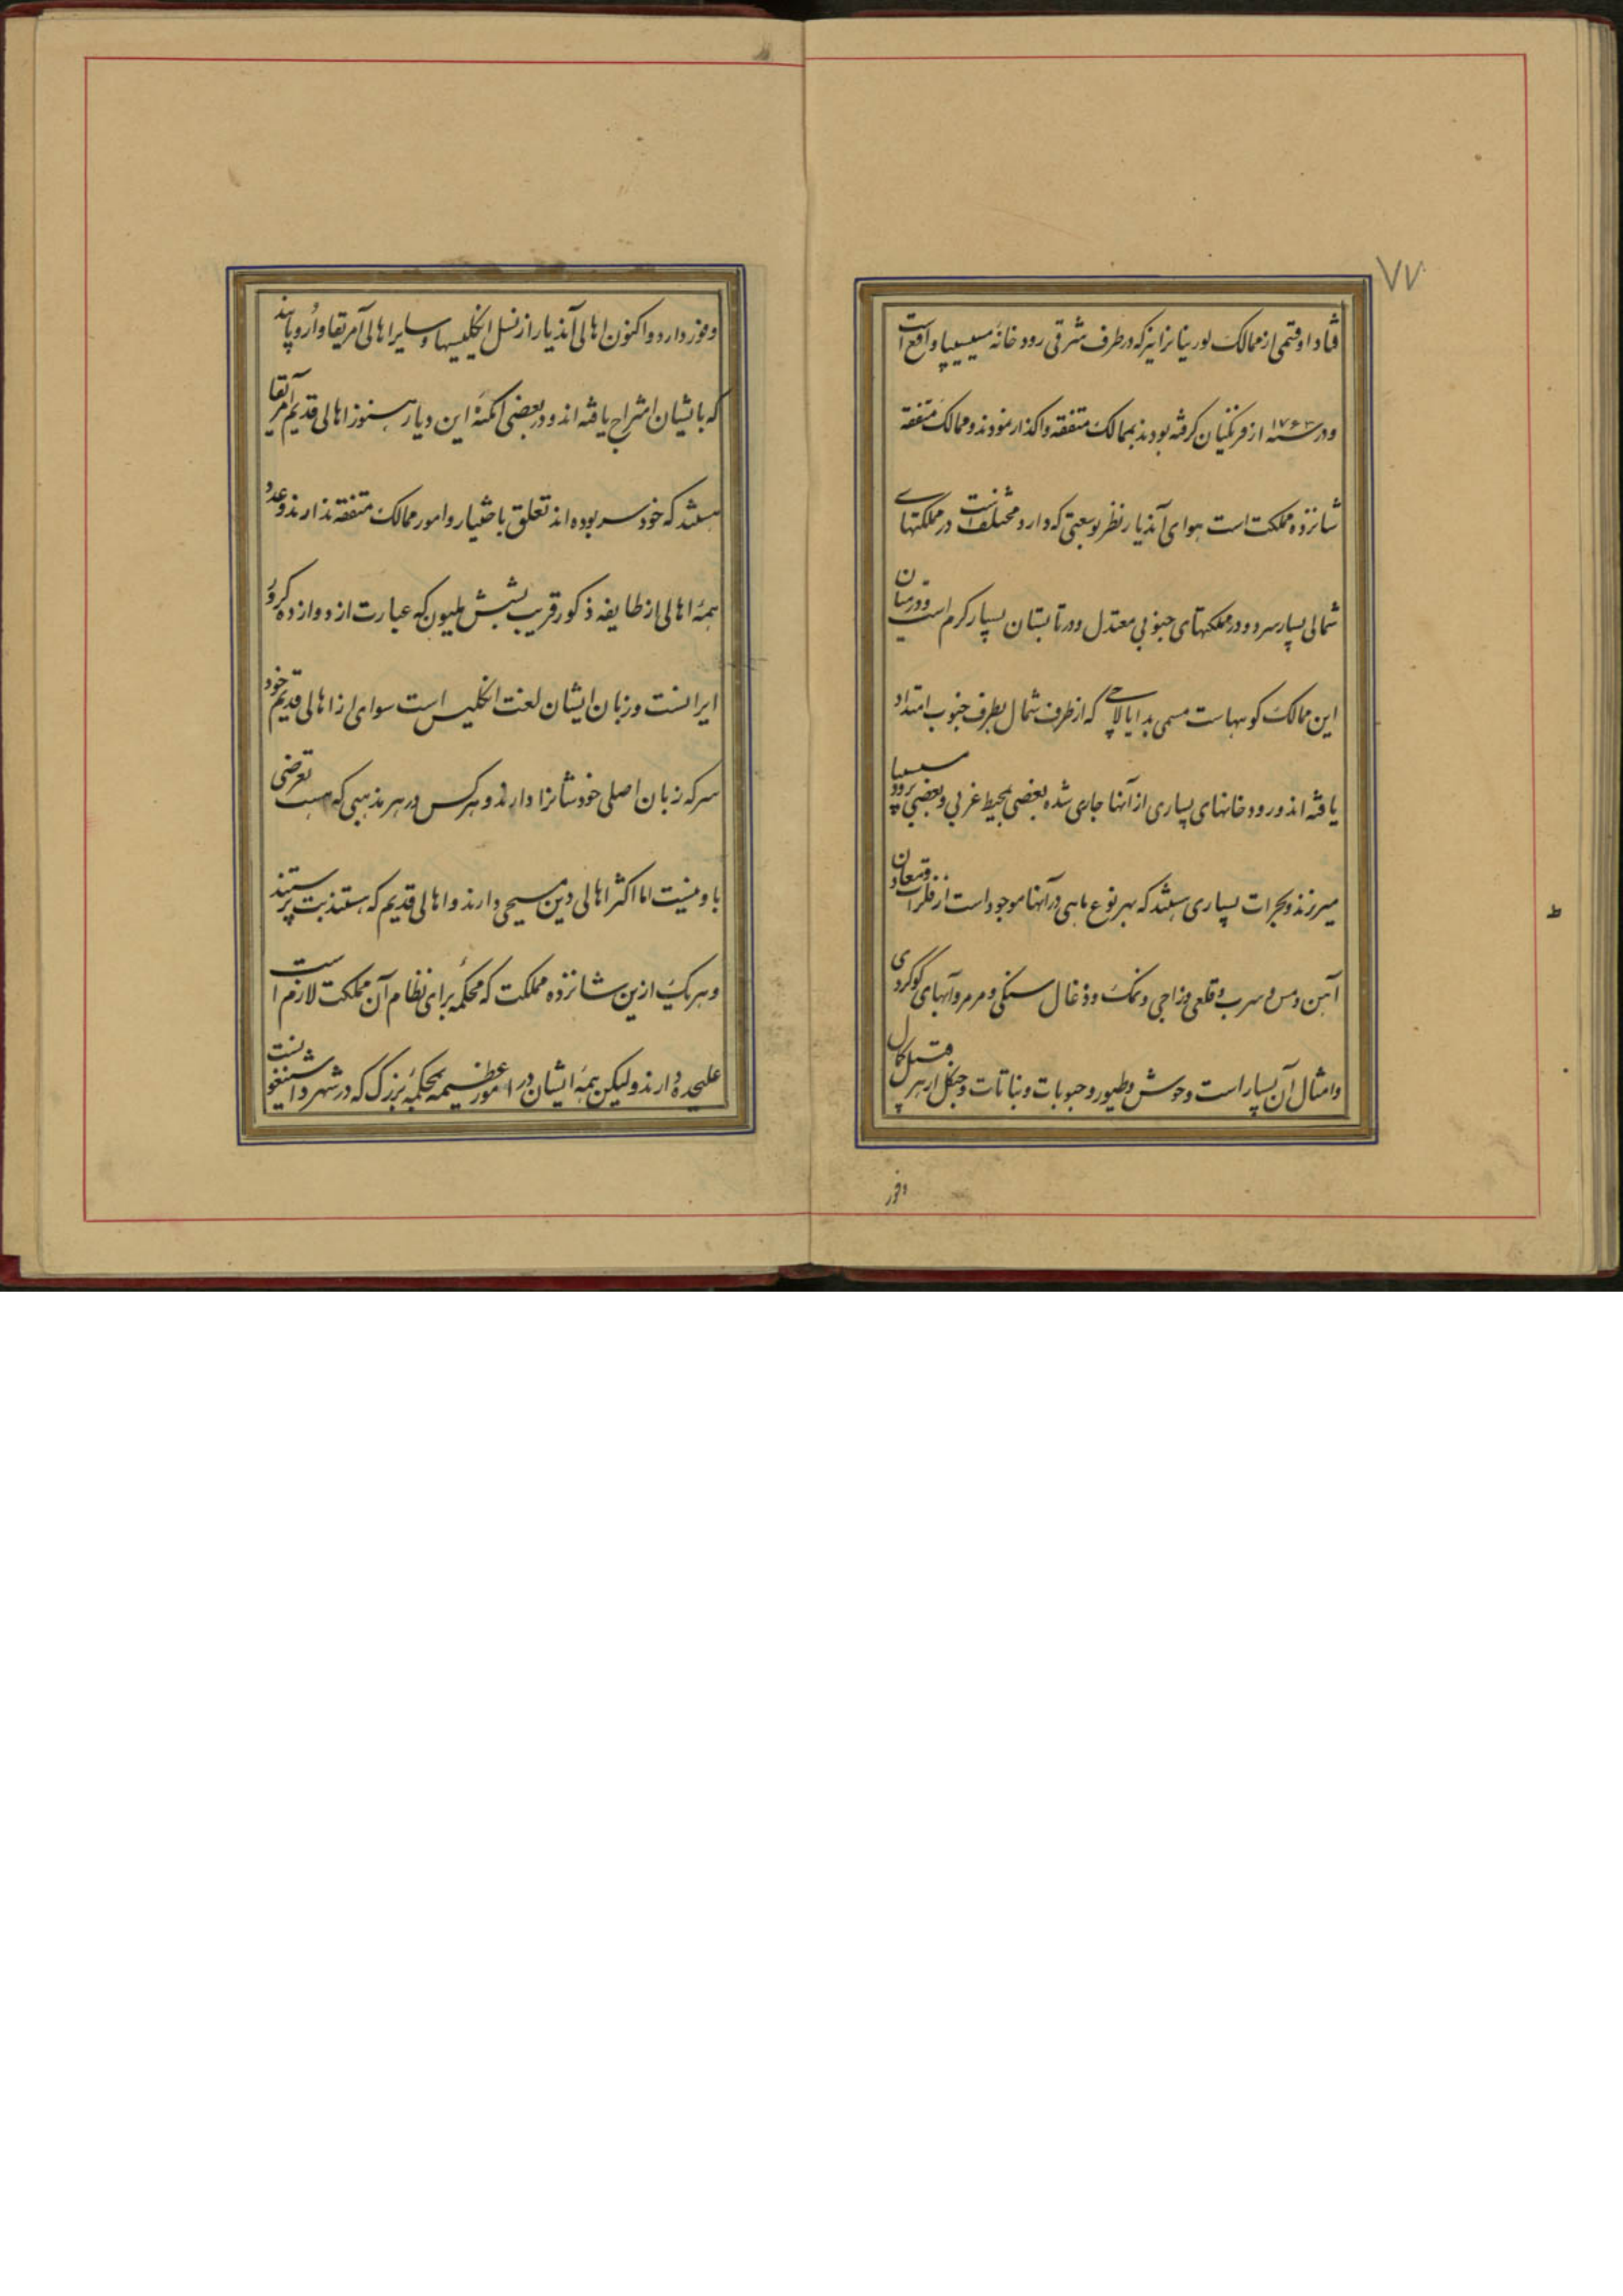 ۷۷
فتاد او قسمی از ممالک لوریتا نرانیز که در طرف شرقی رود خانهٔ میسیسیپا واقع است
و در سنه ۱۷۶۳ از فرنکیان کرفته بودند بممالک متفقه واکذار نمودند و ممالک متفقه
شانزده مملکت است هوای آندیار نظر بوسعتی که دارد مختلف است در مملکتهای
شمالی بسیار سرد و در مملکتهای جنوبی معتدل و در تابستان بسیار کرم است و در میان
این ممالک کوههاست مسمی به اپالاچی که از طرف شمال بطرف جنوب امتداد
یافته اند و رود خانهای بسیاری از آنها جاری شده بعضی بمحیط غربی و بعضی برود میسیسیپا
میریزند و بحیرات بسیاری هستند که بهر نوع ماهی در آنها موجود است از فلزات و معادن
آهن و مس و سرب و قلعی و زاجی و نمک و ذغال سنکی و مرمر و آبهای کوکردی
و امثال آن بسیار است وحوش و طیور و حبوبات و نباتات و جنکل از هر قبیل کمال
وفور
وفور دارد و اکنون اهالی آندیار از نسل انکلیسیها و سایر اهالی آمریقا و اروپایند
که با یشان امتزاج یافته اند و در بعضی امکنهٔ این دیار هنوز اهالی قدیم آمریقا
هستند که خود سر بوده اند تعلق باختیار و امور ممالک متفقه ندارند و عدد
همهٔ اهالی از طایفه ذکور قریب بشش ملیون که عبارت از دوازده کرور
ایرانست و زبان ایشان لغت انکلیس است سوای از اهالی قدیم خود
سر که زبان اصلی خودشانرا دارند و هر کس در هر مذهبی که هست تعرضی
با و نیست اما اکثر اهالی دین مسیحی دارند و اهالی قدیم که هستند بت پرستند
و هر یک ازین شانزده مملکت که محکمهٔ برای نظام آن مملکت لازم است
علیحده دارند و لیکن همهٔ ایشان در امور عظیمه بمحکمهٔ بزرک که در شهر واشینغتو نست